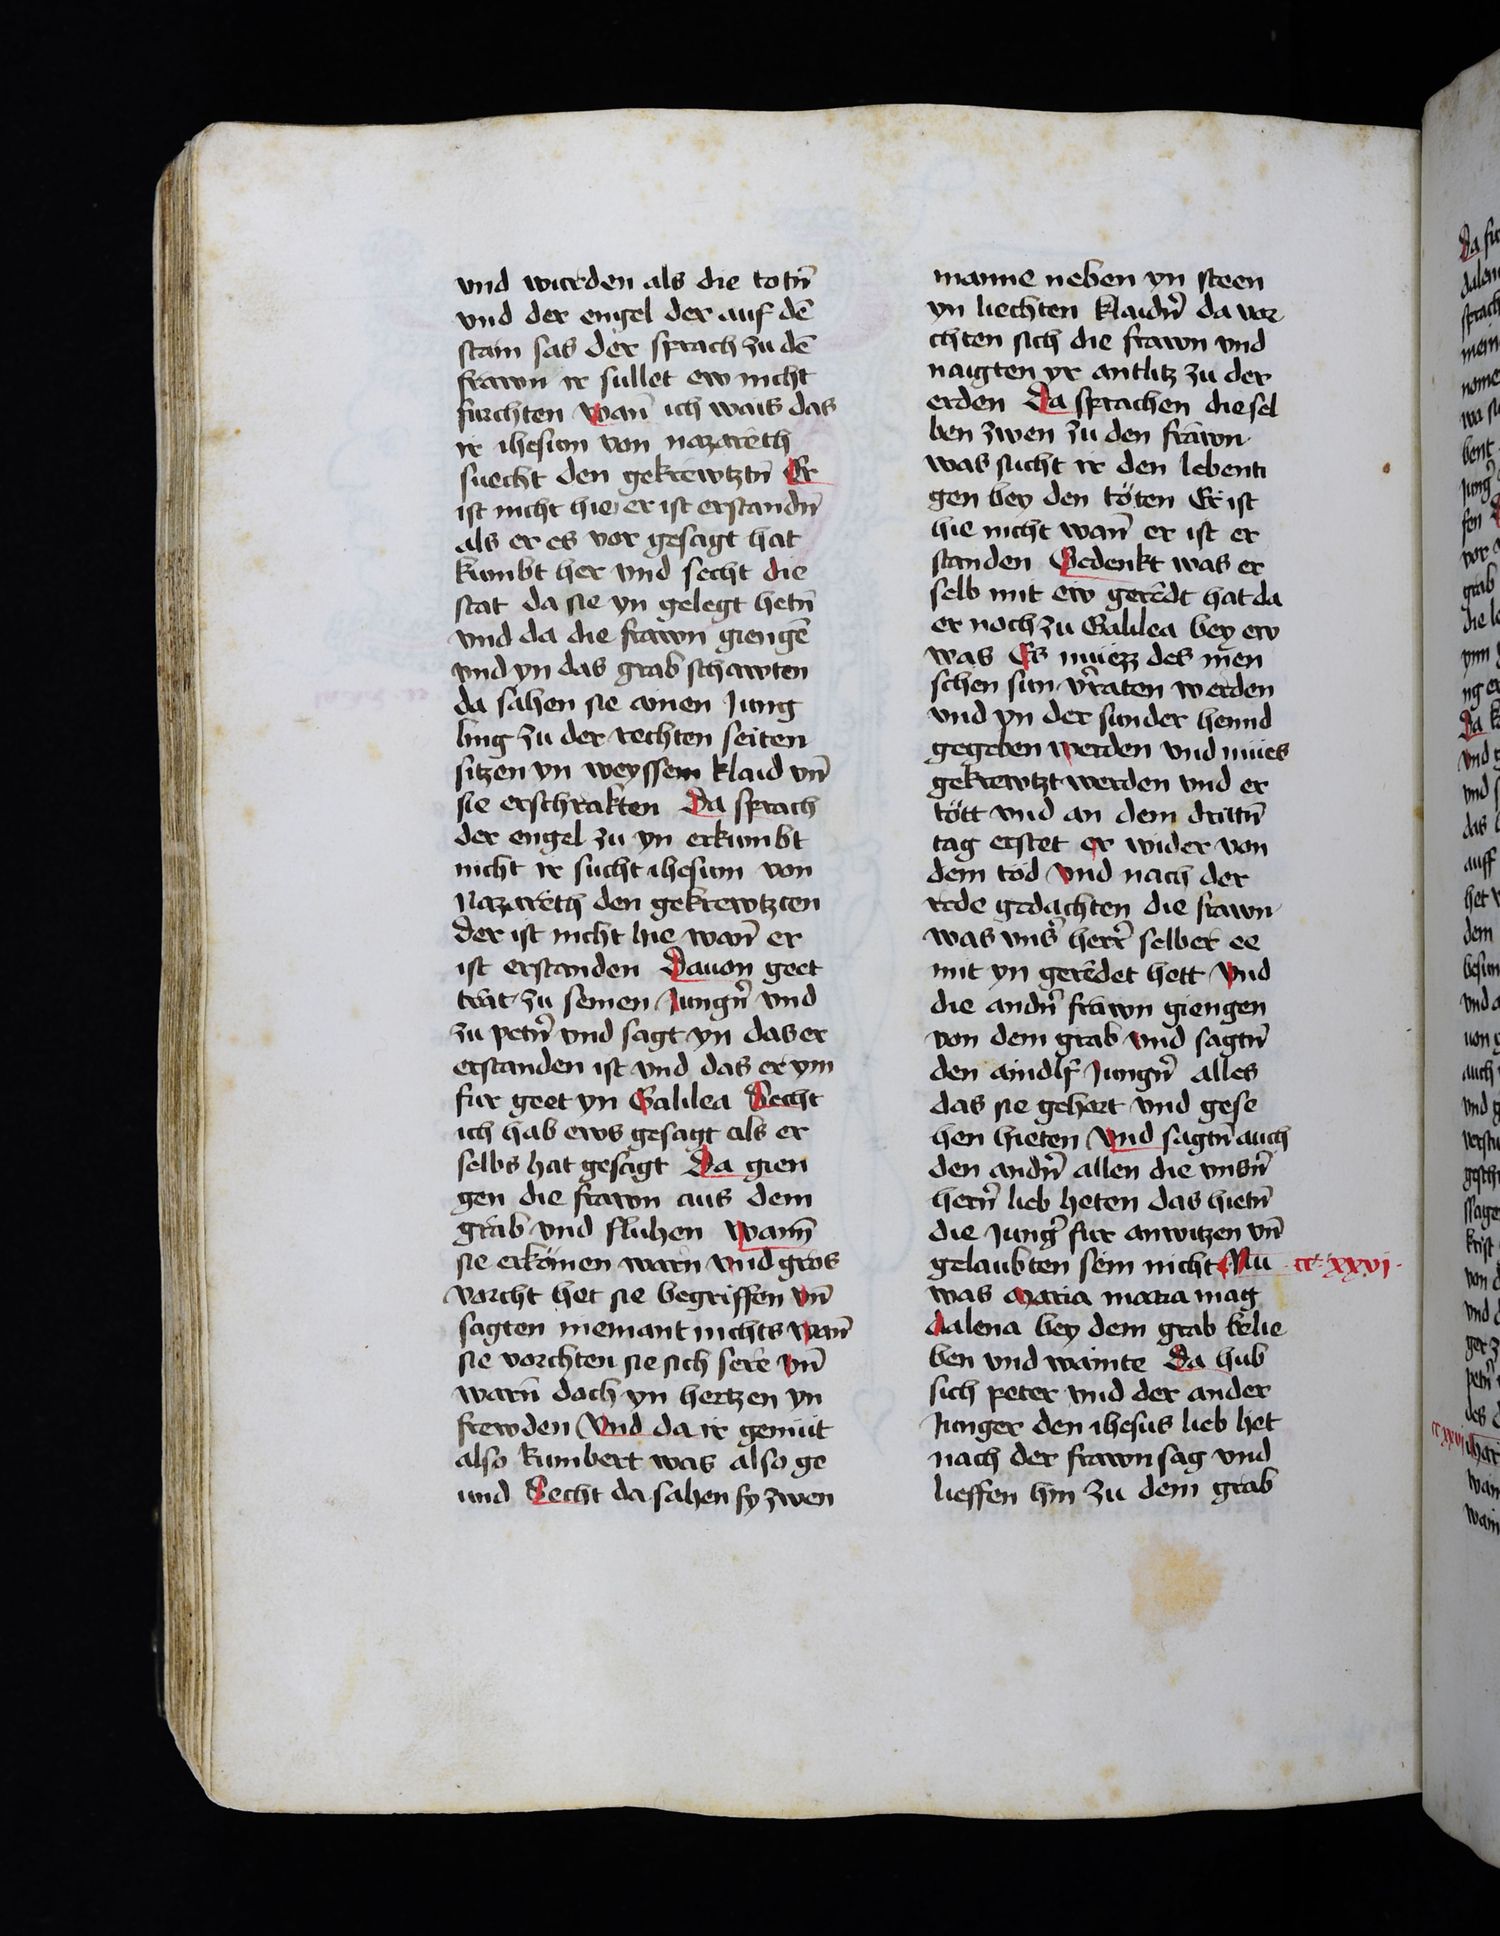 vnd wurden als die totn̄
vnd der engel der auf dē
stain sas der sprach zu dē
frawn ir sullet ew nicht
furchten wan̄ ich wais das
ir ihesum von nazareth
suecht den gekrewtztn̄ Er
ist nicht hie er ist erstandn̄
als er es vor gesagt hat
kumbt her vnd secht die
stat da sie yn gelegt hetn̄
vnd da die frawn giengē
vnd yn das grab schawten
da sahen sie ainen Jung
ling zu der rechten seiten
sitzen yn weyssem klaid vn̄
sie erschrakten Da sprach
der engel zu yn erkumbt
nicht ir sucht ihesum von
Nazareth den gekrewtzten
der ist nicht hie wan̄ er
ist erstanden Dauon geet
trat zu seinen Jungn̄ vnd
zu petn̄ vnd sagt yn das er
erstanden ist vnd das er ym
fur geet yn Galilea Secht
ich hab ews gesagt als er
selbs hat gesagt Da gien
gen die frawn aus dem
grab vnd fluhen wann̄
sie erkömen warn vnd gros
vorcht het sie begriffen vn̄
sagten niemant nichts wan̄
sie vorchten sie sich sere vn̄
warn̄ doch yn hertzen yn
frewden Vnd da ir gemüt
also kumbert was also ge
und Secht da sahen sy zwen
manne neben yn steen
yn liechten klaidn̄ da vor
chten sich die frawn vnd
naigten yr antlitz zu der
erden Da sprachen die sel
ben zwen zu den frawn
was sucht ir den lebenti
gen bey den töten Er ist
hie nicht wan̄ er ist er
standen Gedenkt was er
selb mit ew geredt hat da
er noch zu Galilea bey ew
was Es muezz des men
schen sun v̄raten werden
vnd yn der sunder hennd
gegeben werden vnd mues
gekrewtzt werden vnd er
tött vnd an dem drittn̄
tag erstet er wider von
dem tod vnd nach der
rede gedachten die frawn
was vns̄ herr̄ selber ee
mit yn geredet hett Vnd
die andn̄ frawn giengen
von dem grab vnd sagtn̄
den aindlf Jungn̄ alles
das sie gehort vnd gese
hen hieten Vnd sagtn̄ auch
den andn̄ allen die vnsn̄
hern̄ lieb heten das hietn̄
die Junḡ fur anwitzen vn̄
gelaubten sein nicht Nu cc xxvi
was maria maria mag
dalena bey dem grab belie
ben vnd wainte Da hub
sich peter vnd der ander
Junger den ihesus lieb het
nach der frawn sag vnd
lieffen hin zu dem grab